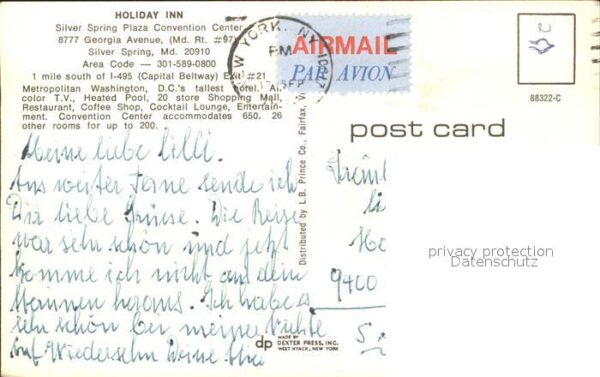 HOLIDAY INN
Silver Spring Plaza Convention Center
8777 Georgia Avenue, (Md. Rt. #97)
Silver Spring, Md. 20910
Area Code — 301-589-0800
1 mile south of I-495 (Capital Beltway) Exit #21
Metropolitan Washington, D.C.'s tallest hotel. Air,
color T.V., Heated Pool, 20 store Shopping Mall,
Restaurant, Coffee Shop, Cocktail Lounge, Entertain-
ment. Convention Center accommodates 650. 26
other rooms for up to 200.
NEW YORK, N.Y.
PM
AIRMAIL
PAR AVION
88322-C
post card
Meine liebe Lilli.
Aus weiter Ferne sende ich
Dir liebe Grüsse. Die Reise
war sehr schön und jetzt
komme ich nicht aus dem
Staunen heraus. Ich habe es
sehr schön bei meiner Nichte
Auf Wiedersehn Deine
9400
Distributed by L.B. Prince Co., Fairfax, V
privacy protection
Datenschutz
dp
MADE BY
DEXTER PRESS, INC.
WEST NYACK, NEW YORK